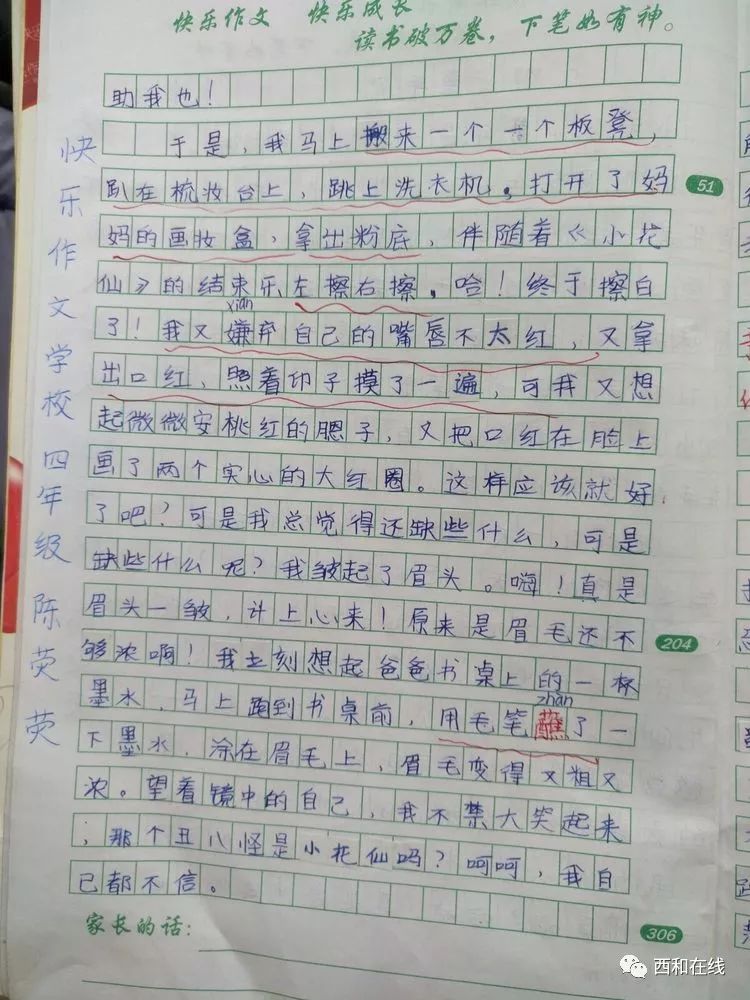 快乐作文 快乐成长
读书破万卷，下笔如有神。
助我也！
于是，我马上搬来一个一个板凳，
趴在梳妆台上，跳上洗衣机，打开了妈
51
妈的画妆盒，拿出粉底，伴随着《小花
仙》的结束乐左擦右擦，哈！终于擦白
xián
了！我又嫌弃自己的嘴唇不太红，又拿
出口红，照着印子摸了一遍，可我又想
起微微安桃红的腮子，又把口红在脸上
画了两个实心的大红圈。这样应该就好
了吧？可是我总觉得还缺些什么，可是
缺些什么呢？我皱起了眉头。嗨！真是
眉头一皱，计上心来！原来是眉毛还不
204
够浓啊！我立刻想起爸爸书桌上的一杯
zhàn
墨水，马上跑到书桌前，用毛笔蘸了一
下墨水，涂在眉毛上，眉毛变得又粗又
浓。望着镜中的自己，我不禁大笑起来
，那个丑八怪是小花仙吗？呵呵，我自
己都不信。
306
家长的话：
快乐作文学校四年级陈荧荧
西和在线